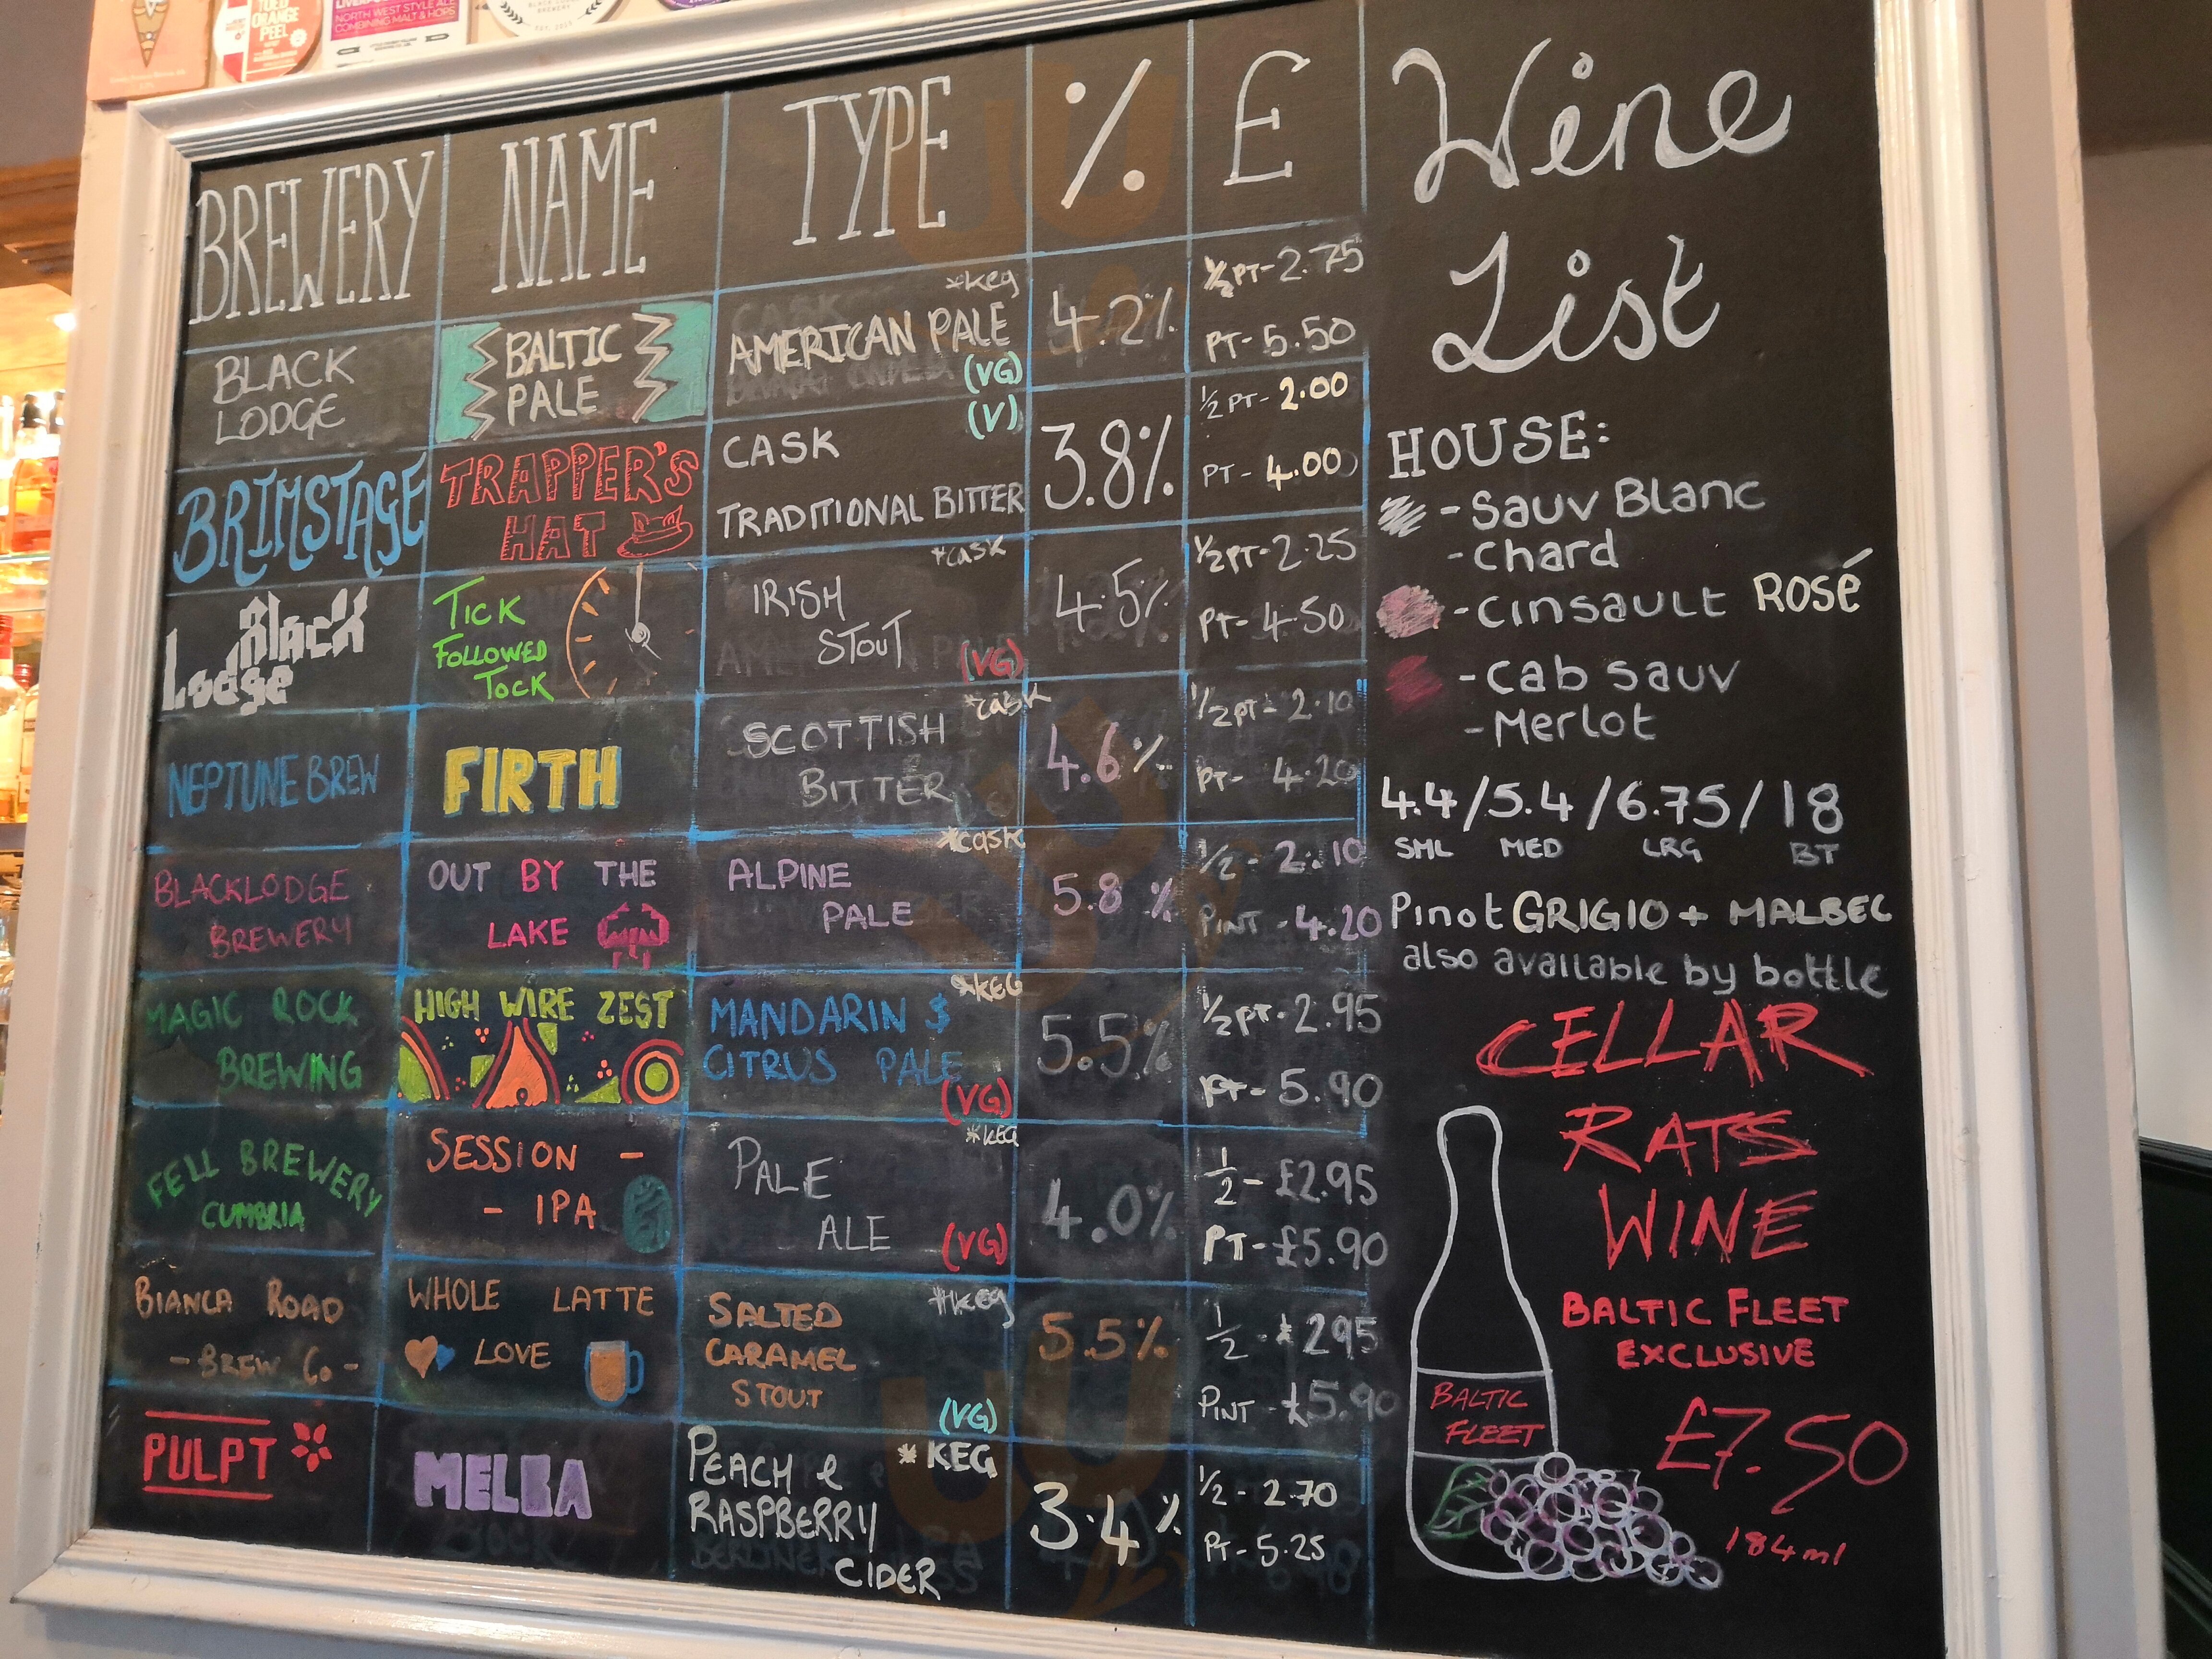 TOED
ORANGE
PEEL
NORTH WEST STYLE ALE
COMBINING MALT & HOPS
BREWERY
BREWERY NAME TYPE % £
*keg
BLACK
LODGE
BALTIC
PALE
AMERICAN PALE
(VG)
4.2%
½ PT - 2.75
PT - 5.50
BRIMSTAGE
TRAPPER'S
HAT
(V)
CASK
TRADITIONAL BITTER
3.8%
½ PT - 2.00
PT - 4.00
Black
Lodge
TICK
FOLLOWED
TOCK
*cask
IRISH
STOUT
(VG)
4.5%
½ PT - 2.25
PT - 4.50
NEPTUNE BREW
FIRTH
*cask
SCOTTISH
BITTER
4.6%
½ pt - 2.10
PT - 4.20
BLACKLODGE
BREWERY
OUT BY THE
LAKE
*cask
ALPINE
PALE
5.8 %
½ - 2.10
PINT - 4.20
MAGIC ROCK
BREWING
HIGH WIRE ZEST
*KEG
MANDARIN $
CITRUS PALE
(VG)
5.5%
½ pt - 2.95
PT - 5.90
FELL BREWERY
CUMBRIA
SESSION -
- IPA
*KEG
PALE
ALE
(VG)
4.0%
½ - £2.95
PT - £5.90
BIANCA ROAD
- BREW Co -
WHOLE LATTE
LOVE
*keg
SALTED
CARAMEL
STOUT
(VG)
5.5%
½ - £295
PINT - £5.90
PULPT
MELBA
* KEG
PEACH &
RASPBERRY
CIDER
3.4 %
½ - 2.70
PT - 5.25
Wine
List
HOUSE:
- Sauv Blanc
- Chard
- Cinsault ROSÉ
- Cab sauv
- Merlot
4.4/5.4/6.75/18
SML MED LRG BT
Pinot GRIGIO + MALBEC
also available by bottle
CELLAR
RATS
WINE
BALTIC FLEET
EXCLUSIVE
BALTIC
FLEET
£7.50
184ml